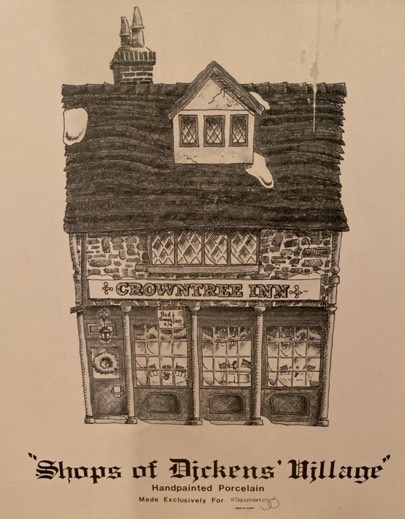 CROWNTREE INN
"Shops of Dickens' Village"
Handpainted Porcelain
Made Exclusively For Department 56